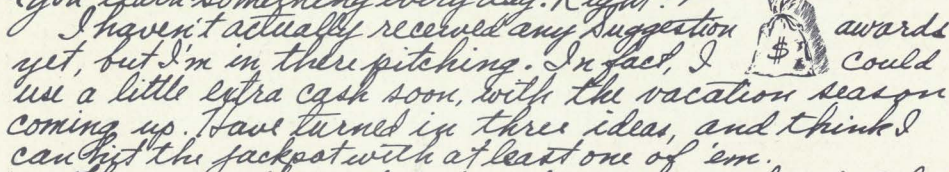 you learn something every day. Right?
I haven't actually received any Suggestion $ awards
yet, but I'm in there pitching. In fact, I could
use a little extra cash soon, with the vacation season
coming up. Have turned in three ideas, and think I
can hit the jackpot with at least one of 'em.